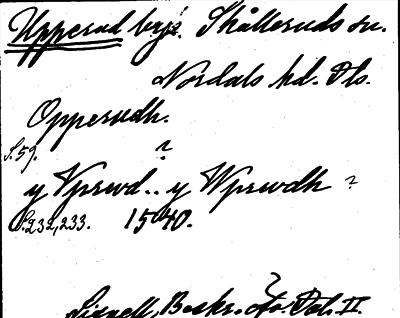 Upperud by i Skålleruds sn.
Nordals hd. Dls.
Opperudh.
S. 59. ?
y Vprwd.. y Wprwdh ?
S. 232, 233. 1540.
Lignell, Beskr. Dal. II.